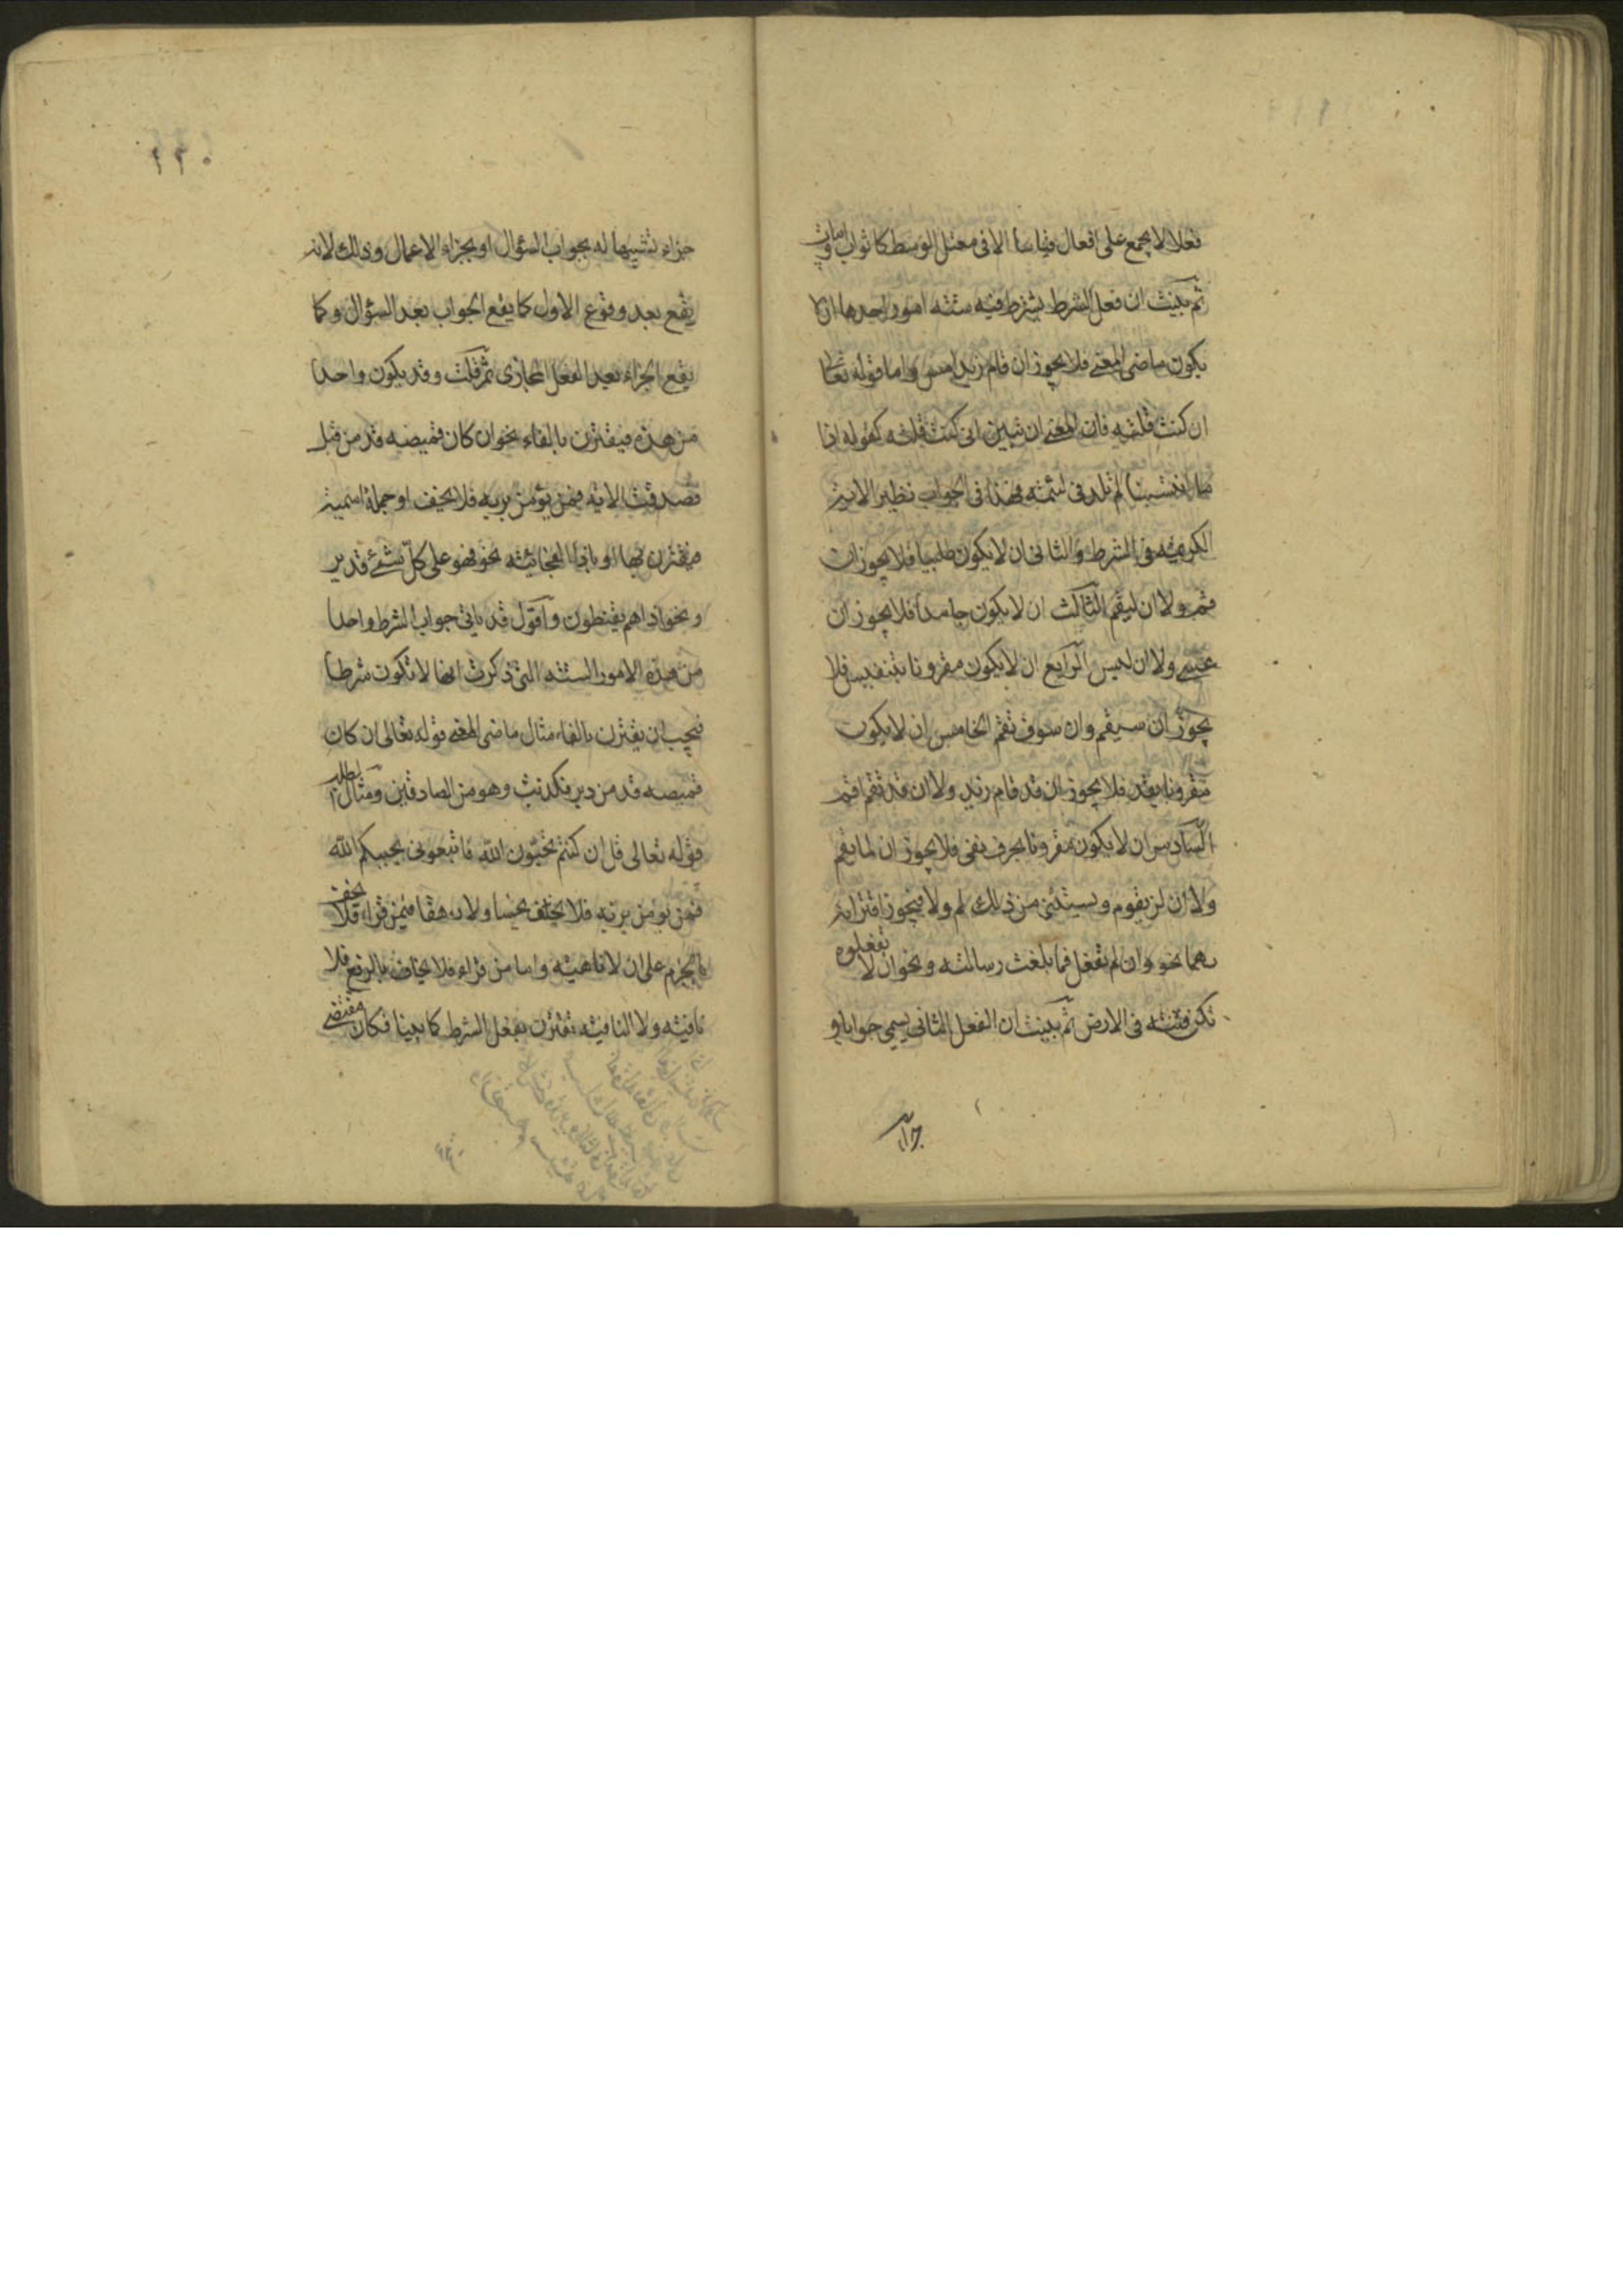 فعلا لا يجمع على افعال قياسا الا فى معتل الوسط كاثواب وابيات
ثم بينت ان فعل الشرط يشترط فيه ستة امور احدها ان لا
يكون ماضى المعنى فلا يجوز ان قام زيد امس واما قوله تعالى
ان كنت قلته فان المعنى ان تبين انى كنت قلته كقوله اذا
ما انتسبنا لم تلدنى لئيمة فهذا فى الجواب نظير الاية
الكريمة فى الشرط والثانى ان لا يكون طلبيا فلا يجوز ان
قم ولا ان ليقم الثالث ان لا يكون جامدا فلا يجوز ان
عسى ولا ان ليس الرابع ان لا يكون مقرونا بتنفيس فلا
يجوز ان سيقم وان سوف تقم الخامس ان لا يكون
مقرونا بقد فلا يجوز ان قد قام زيد ولا ان قد تقم اقم
السادس ان لا يكون مقرونا بحرف نفى فلا يجوز ان لما يقم
ولا ان لن يقوم ويستثنى من ذلك لم ولا فيجوز اقترانه
بهما نحو وان لم تفعل فما بلغت رسالته ونحو ان لا تفعلوه
تكن فتنة فى الارض ثم بينت ان الفعل الثانى يسمى جوابا و
جزاء
١٢٠
جزاء تشبيها له بجواب السؤال او بجزاء الاعمال وذلك لانه
يقع بعد وقوع الاول كما يقع الجواب بعد السؤال وكما
يقع الجزاء بعد الفعل المجازى ثم قلت وقد يكون واحدا
من هذه فيقترن بالفاء نحو ان كان قميصه قد من قبل
فصدقت الاية فمن يؤمن بربه فلا يخف او جملة اسمية
فيقترن بها او باذا الفجائية نحو فهو على كل شئ قدير
ونحو اذا هم يقنطون واقول قد ياتى جواب الشرط واحدا
من هذه الامور الستة التى ذكرت انها لا تكون شرطا
فيجب ان يقترن بالفاء مثال ماضى المعنى قوله تعالى ان كان
قميصه قد من دبر فكذبت وهو من الصادقين ومثال الطلب
قوله تعالى قل ان كنتم تحبون الله فاتبعونى يحببكم الله
فمن يؤمن بربه فلا يخاف بخسا ولا رهقا فيمن قراء فلا يخف
بالجزم على ان لا ناهية واما من قراء فلا يخاف بالرفع فلا
نافية ولا النافية تقترن بفعل الشرط كما بينا فكان مقتضى